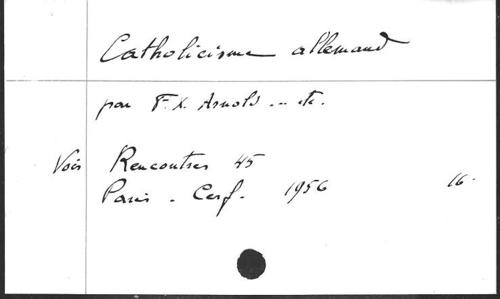 Catholicisme allemand
par F. X. Arnold ... etc.
Voir Rencontres 45
Paris - Cerf. 1956 16.